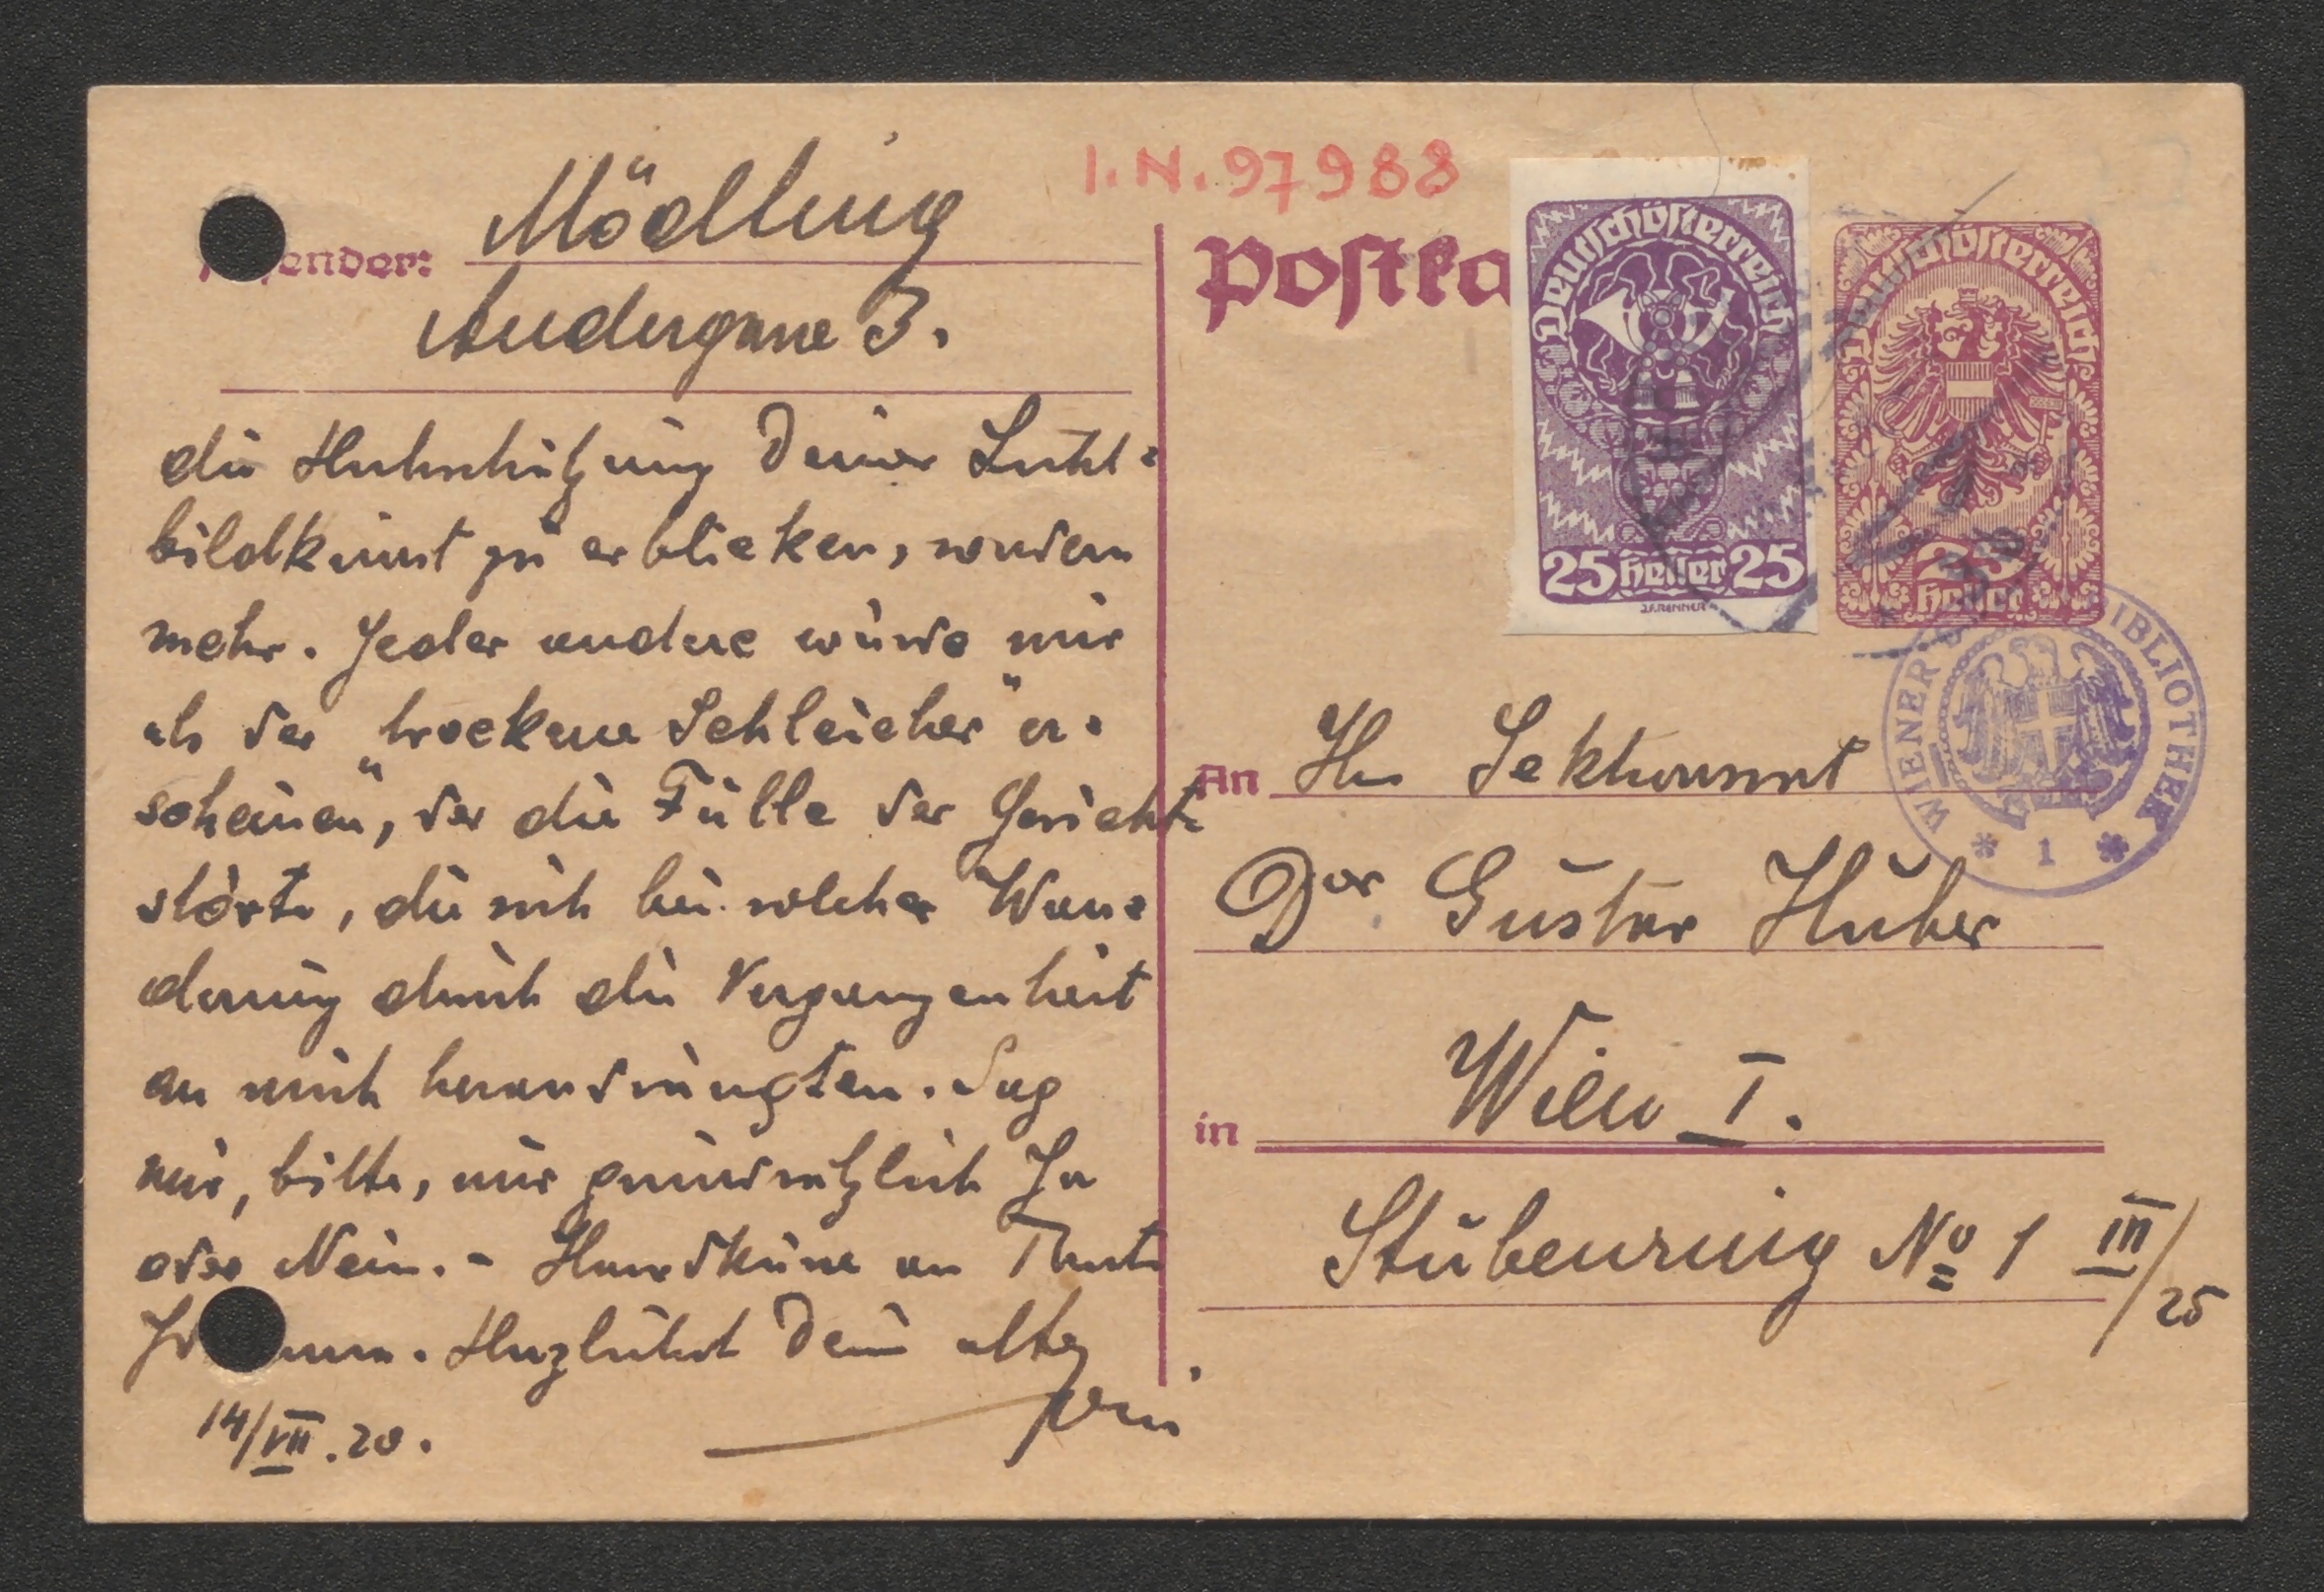 I.N. 97988
Absender: Mödling
3.
die Huhnhützung Deiner Licht-
bildkunst zu erblicken, sondern
mehr. Jeder andere würde mir
als der „trockene Schleicher" er-
scheinen, der die Fülle der Gesichte
störte, die sich bei solcher Wan-
derung durch die Vergangenheit
an mich herandrängten. Sag
mir, bitte, nur grundsätzlich Ja
oder Nein. - Handküsse an Tante
Herzlichst Dein alter
14/VII.20.
Postka
Deutschösterreich
25 Heller 25
J.F.RENNER
Deutschösterreich
25
Heller
WIENER BIBLIOTHEK
* 1 *
An Hrn Sektionsrat
Dor Gustav Huber
in Wien I.
Stubenring No 1 III/25